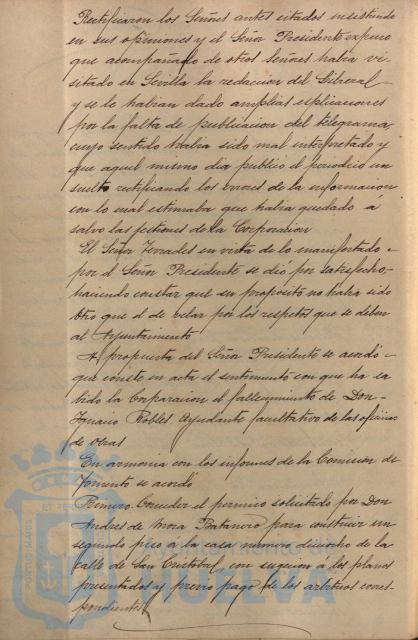 Rectificaron los Señores antes citados insistiendo
en sus opiniones y el Señor Presidente expuso
que acompañado de otros señores habia vi-
sitado en Sevilla la redaccion del Liberal
y se le habian dado amplias esplicaciones
por la falta de publicacion del telegrama,
cuyo sentido habia sido mal interpretado y
que aquel mismo dia publicó el periodico un
suelto rectificando los errores de la informacion
con lo cual estimaba que habia quedado á
salvo las gestiones de la Corporacion
El Señor Terrades en vista de lo manifestado -
por el Señor Presidente se dió por satisfecho,
haciendo constar que su proposito no habia sido
otro que el de velar por los respetos que se deben
al Ayuntamiento
A propuesta del Señor Presidente se acordó -
que conste en acta el sentimiento con que ha sa-
bido la Corporacion el fallecimiento de Don-
Ignacio Robles Ayudante facultativo de las oficinas
de Obras
En armonia con los informes de la Comision de
Fomento se acordó
Primero: Conceder el permiso solicitado por Don
Andres de Mora Batanero para construir un
segundo piso á la casa numero dieciocho de la
calle de San Cristobal, con sugecion á los planos
presentados y previo pago de los arbitrios corres-
pondientes
PORTUS MARIS ET TERRAE
HUELVA